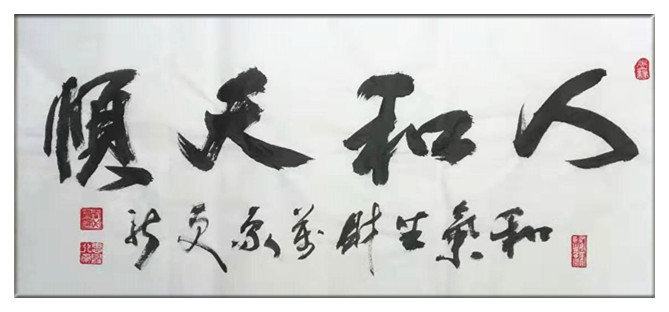 人和天順
和氣生財萬象更新